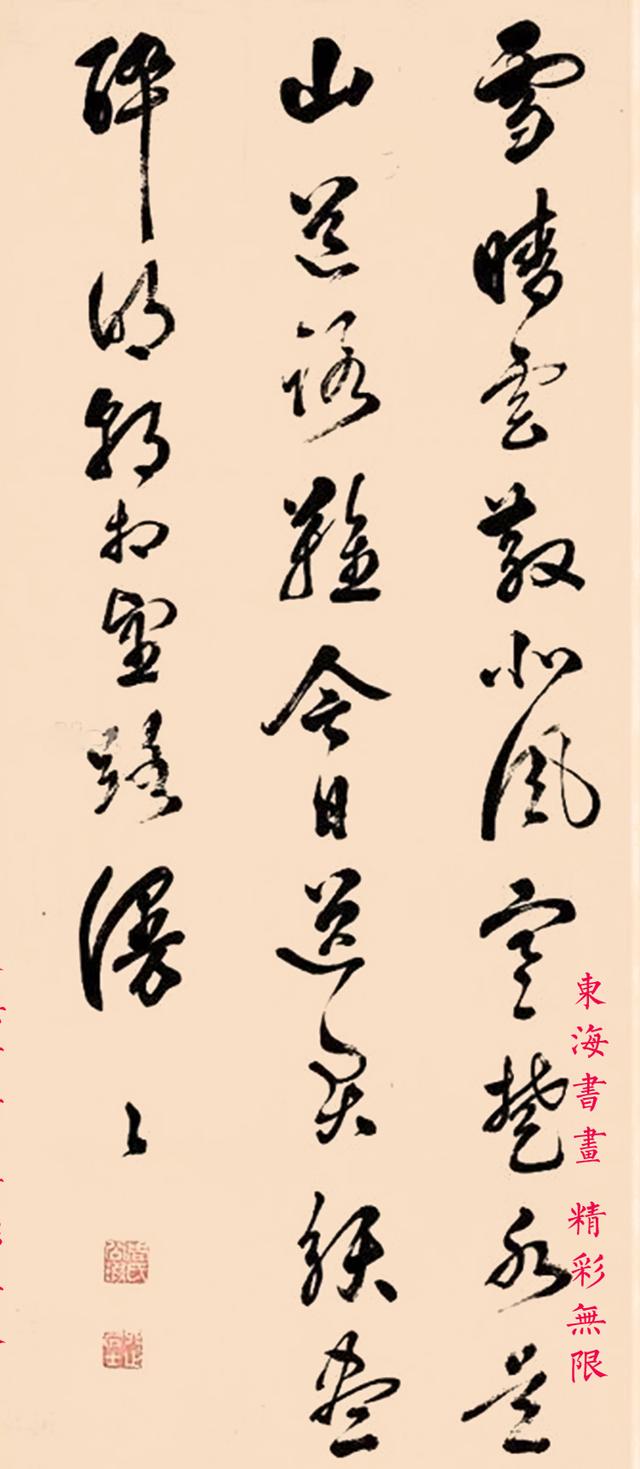 雪晴雲散北風寒楚水吳
山道路難今日送君盡
醉明朝相路漫々
東海書畫 精彩無限